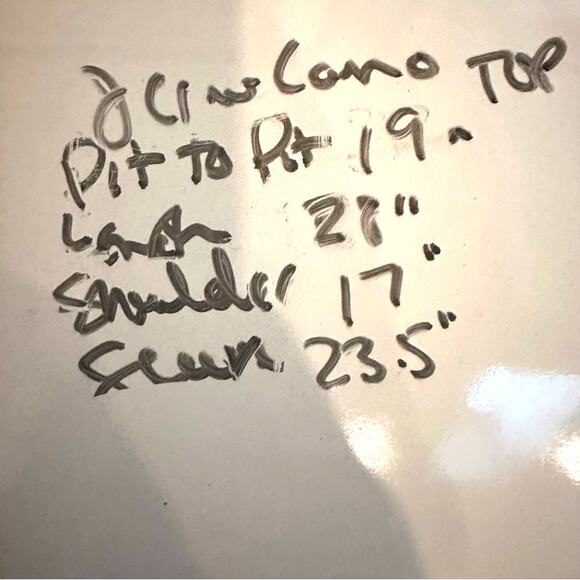 J Crew Camo TOP
Pit To Pit 19"
Length 28"
Shoulder 17"
Sleeve 23.5"